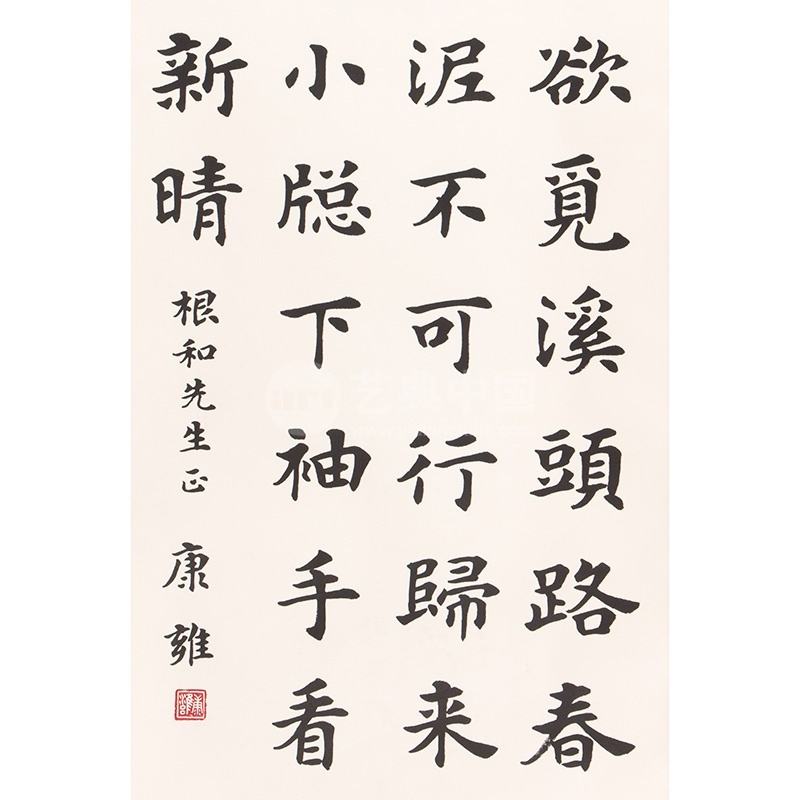 欲覓溪頭路春
泥不可行歸来
小牕下袖手看
新晴
根和先生正
康雍
康雍
艺典中国